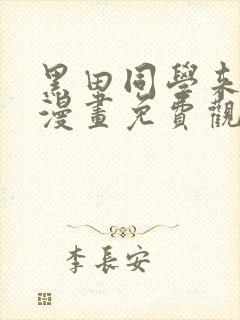 黑田同學來
漫畫免費觀
李長安